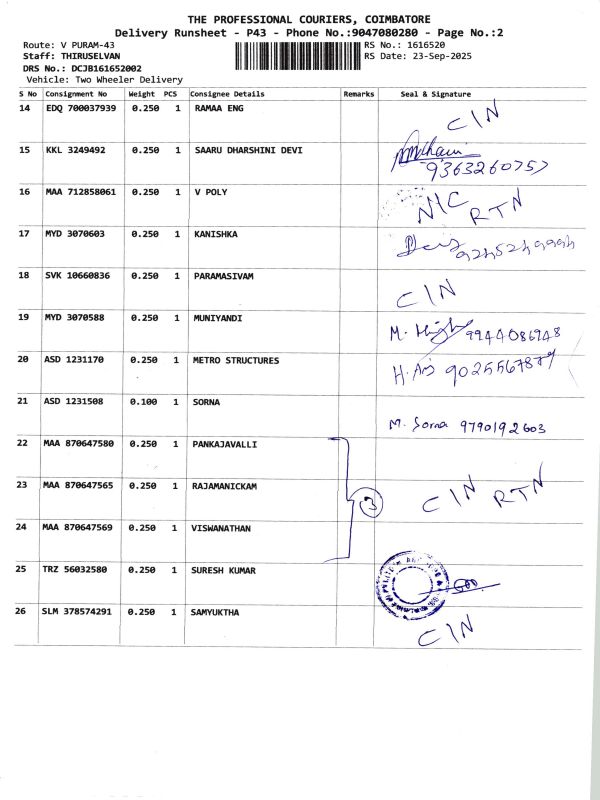 THE PROFESSIONAL COURIERS, COIMBATORE
Delivery Runsheet - P43 - Phone No.:9047080280 - Page No.:2
Route: V PURAM-43 RS No.: 1616520
Staff: THIRUSELVAN RS Date: 23-Sep-2025
DRS No.: DCJB161652002
Vehicle: Two Wheeler Delivery
S No Consignment No Weight PCS Consignee Details Remarks Seal & Signature
14 EDQ 700037939 0.250 1 RAMAA ENG CIN
15 KKL 3249492 0.250 1 SAARU DHARSHINI DEVI
9363260757
16 MAA 712858061 0.250 1 V POLY N/C RTN
17 MYD 3070603 0.250 1 KANISHKA
18 SVK 10660836 0.250 1 PARAMASIVAM CIN
19 MYD 3070588 0.250 1 MUNIYANDI M. 9944086948
20 ASD 1231170 0.250 1 METRO STRUCTURES
21 ASD 1231508 0.100 1 SORNA M. Sorna 9790192603
22 MAA 870647580 0.250 1 PANKAJAVALLI
23 MAA 870647565 0.250 1 RAJAMANICKAM 3 CIN RTN
24 MAA 870647569 0.250 1 VISWANATHAN
25 TRZ 56032580 0.250 1 SURESH KUMAR
26 SLM 378574291 0.250 1 SAMYUKTHA CIN